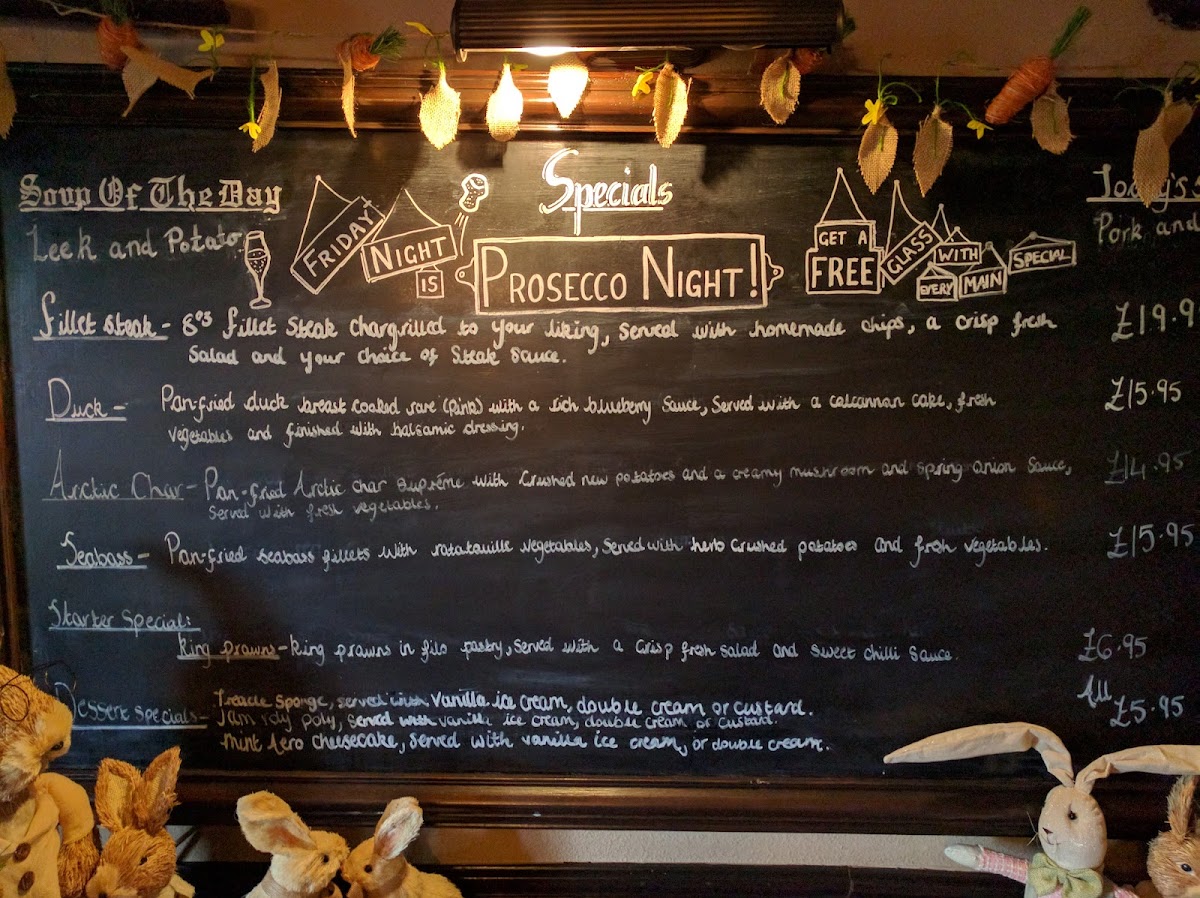 Soup Of The Day
Leek and Potato
FRIDAY NIGHT IS
Specials
PROSECCO NIGHT!
GET A FREE GLASS WITH EVERY MAIN SPECIAL
Today's
Pork and
Fillet Steak - 8oz fillet steak chargrilled to your liking, served with homemade chips, a crisp fresh £19.9
salad and your choice of steak sauce.
Duck - Pan-fried duck breast cooked rare (pink) with a rich blueberry sauce, served with a colcannon cake, fresh £15.95
vegetables and finished with balsamic dressing.
Arctic Char - Pan-fried Arctic char suprême with crushed new potatoes and a creamy mushroom and spring onion sauce, £14.95
served with fresh vegetables.
Seabass - Pan-fried seabass fillets with ratatouille vegetables, served with herb crushed potatoes and fresh vegetables. £15.95
Starter Special:
King prawns - King prawns in filo pastry, served with a crisp fresh salad and sweet chilli sauce. £6.95
Dessert Specials - Treacle Sponge, served with vanilla ice cream, double cream or custard. All £5.95
Jam roly poly, served with vanilla ice cream, double cream or custard.
Mint Aero cheesecake, served with vanilla ice cream, or double cream.